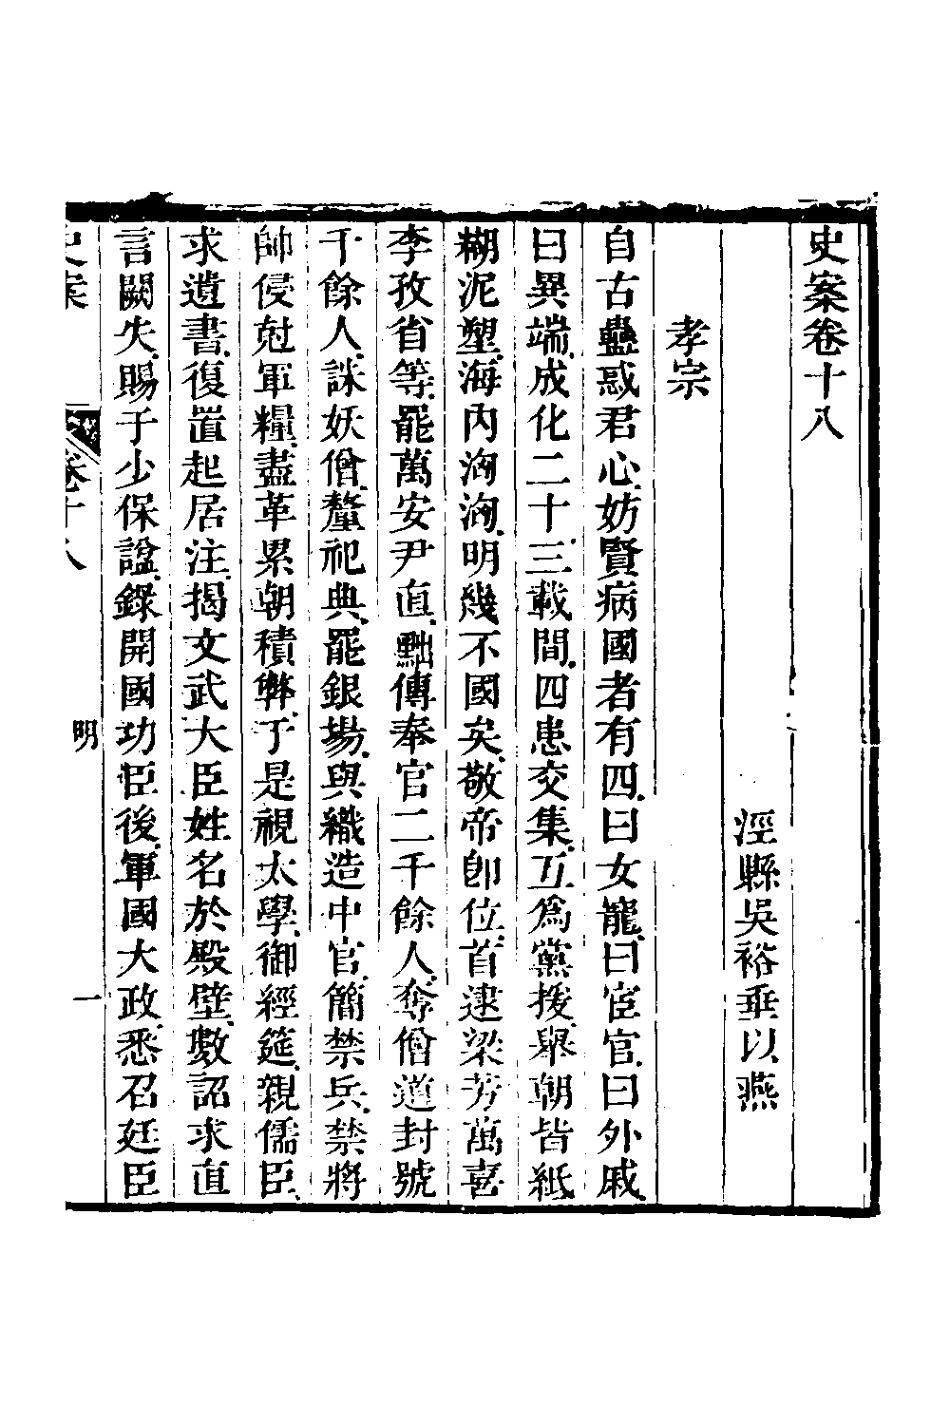 史案卷十八
涇縣吳裕垂以燕
孝宗
自古蠱惑君心妨賢病國者有四曰女寵曰宦官曰外戚
曰異端成化二十三載間四患交集互為黨援舉朝皆紙
糊泥塑海內洶洶明幾不國矣敬帝卽位首逮梁芳萬喜
李孜省等罷萬安尹直黜傳奉官二千餘人奪僧道封號
千餘人誅妖僧釐祀典罷銀場與織造中官簡禁兵禁將
帥侵尅軍糧盡革累朝積弊于是視太學御經筵親儒臣
求遺書復置起居注揭文武大臣姓名於殿壁數詔求直
言闕失賜于少保諡錄開國功臣後軍國大政悉召廷臣
史案 卷十八 明 一